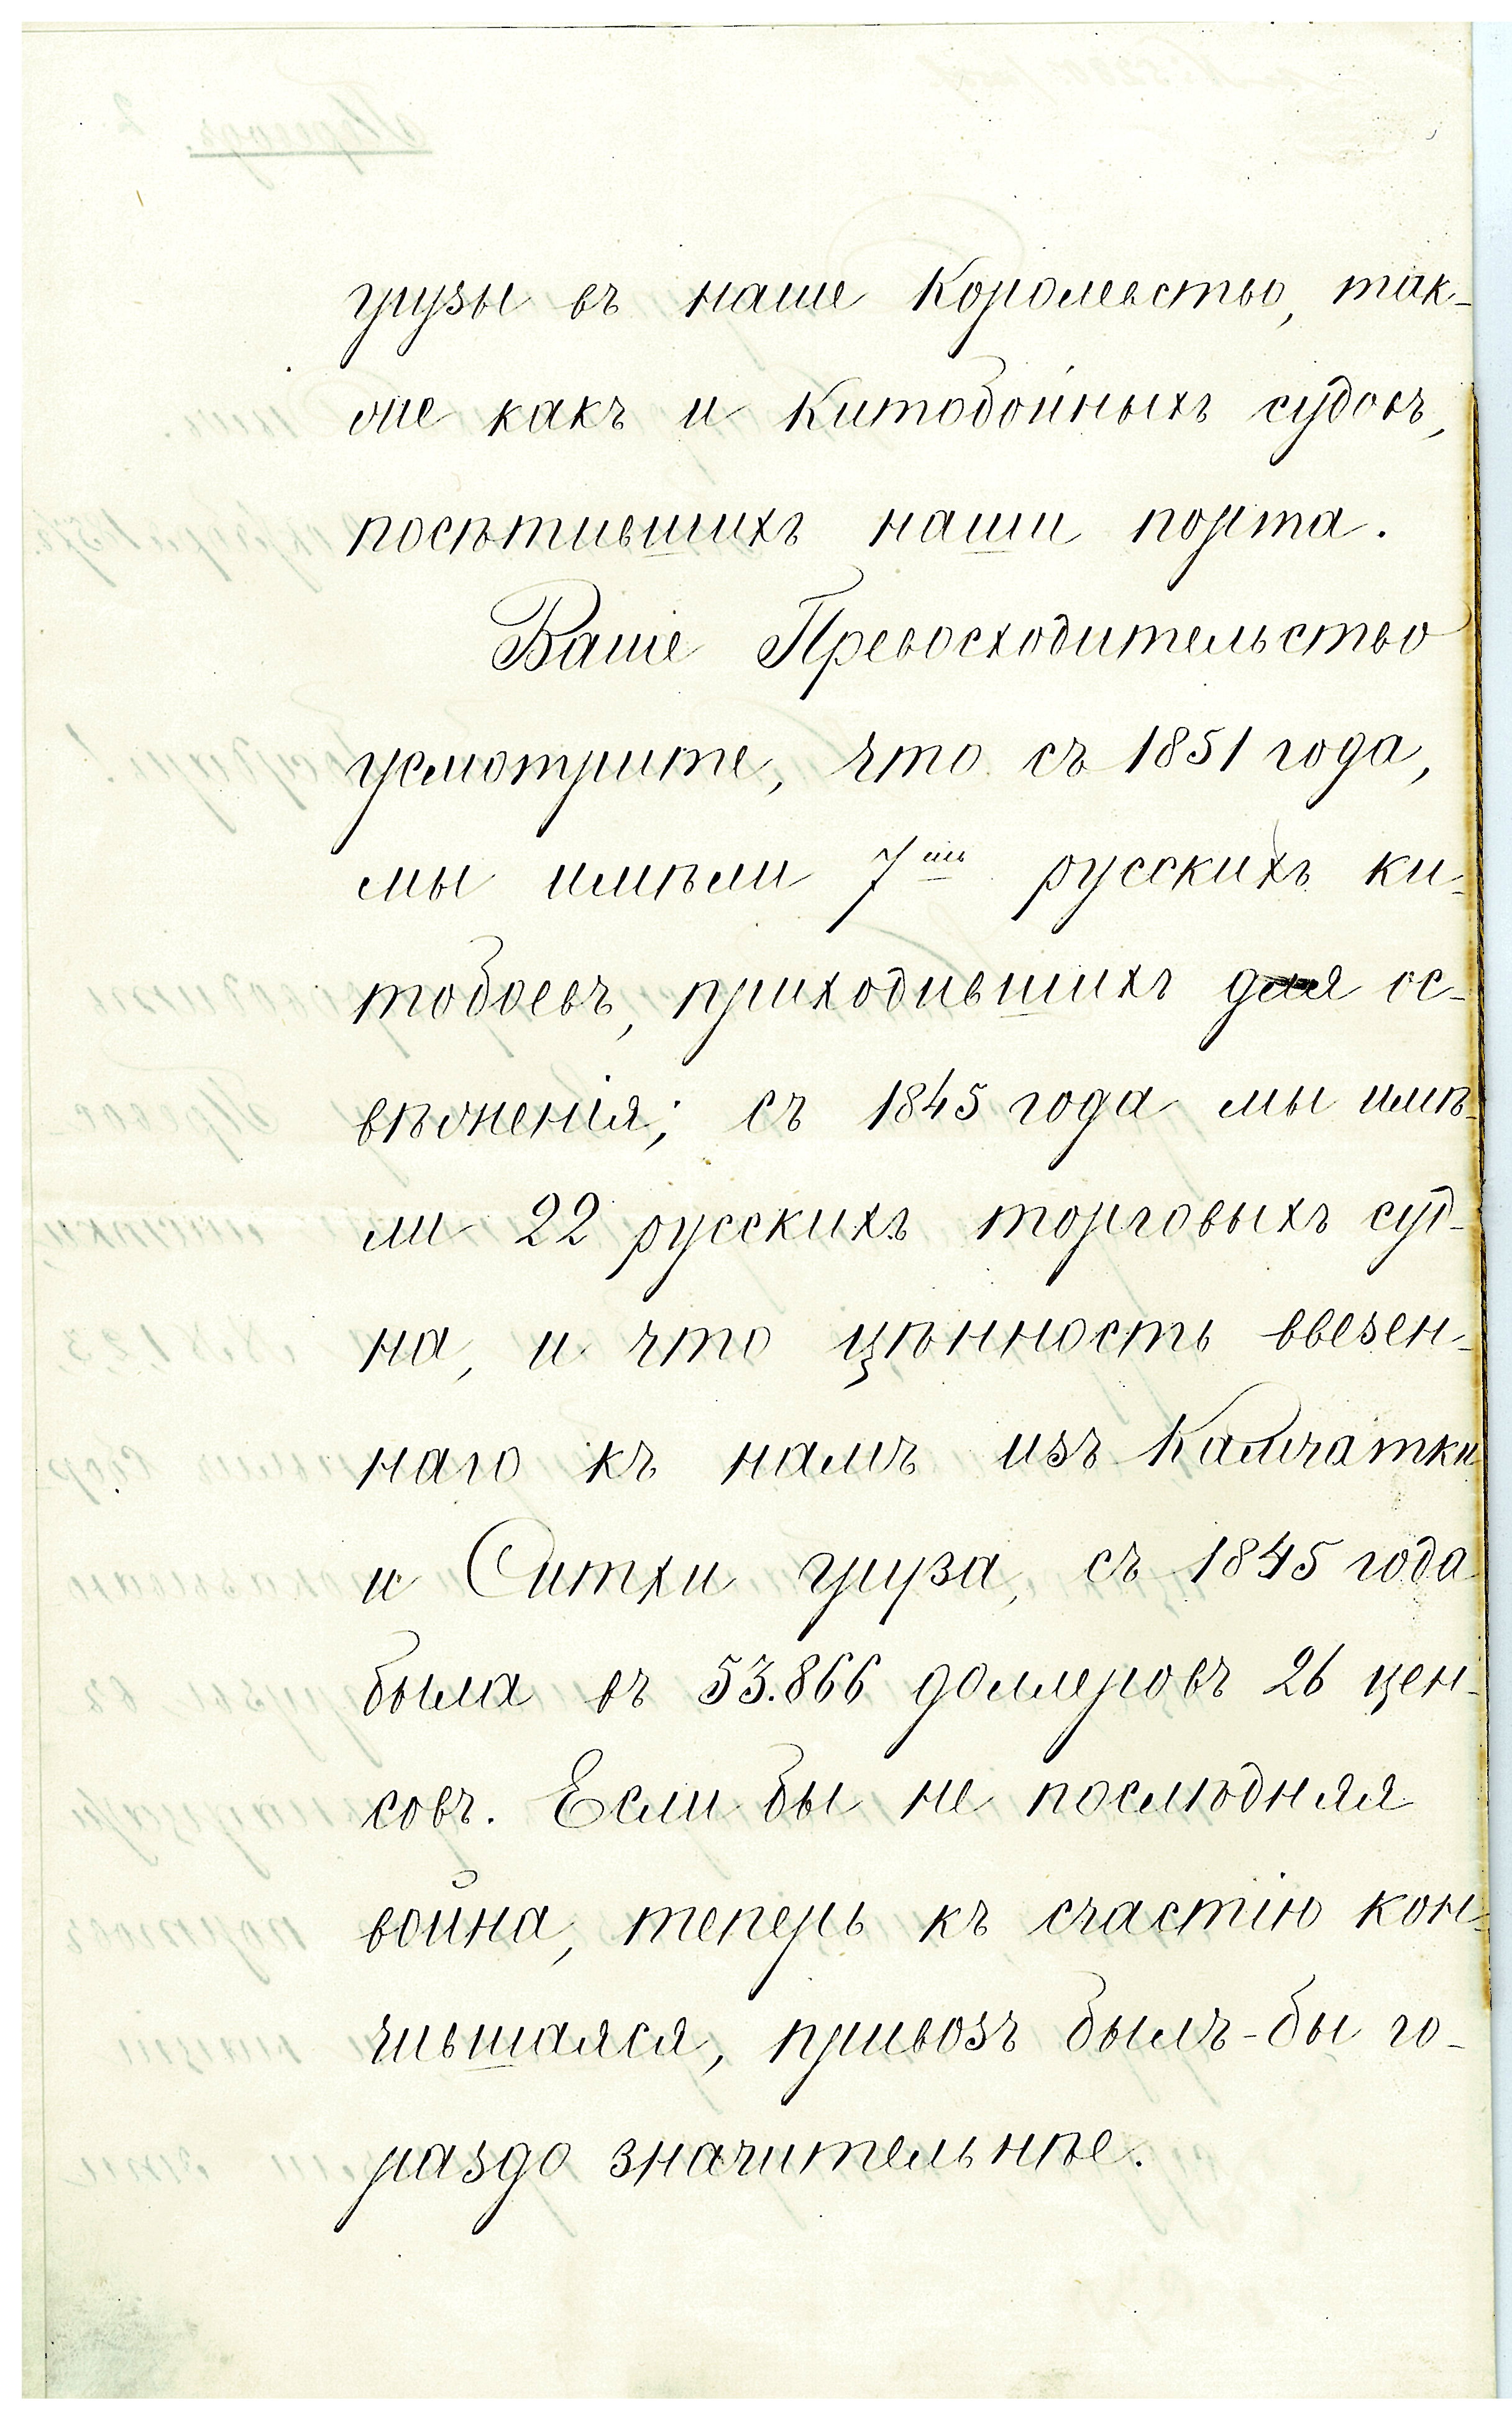 грузы въ наше Королевство, так-
же какъ и Китобойныхъ судовъ,
посѣтившихъ наши порта.
Ваше Превосходительство
усмотрите, что съ 1851 года,
мы имѣли 7мь русскихъ ки-
тобоевъ, приходившихъ для ос-
вѣженія; съ 1845 года мы имѣ-
ли 22 русскихъ торговыхъ суд-
на, и что цѣнность ввезен-
наго къ намъ изъ Камчатки
и Ситхи груза, съ 1845 года
была въ 53.866 доллеровъ 26 цен-
совъ. Если бы не послѣдняя
война, теперь къ счастію кон-
чившаяся, привозъ былъ-бы го-
раздо значительнѣе.